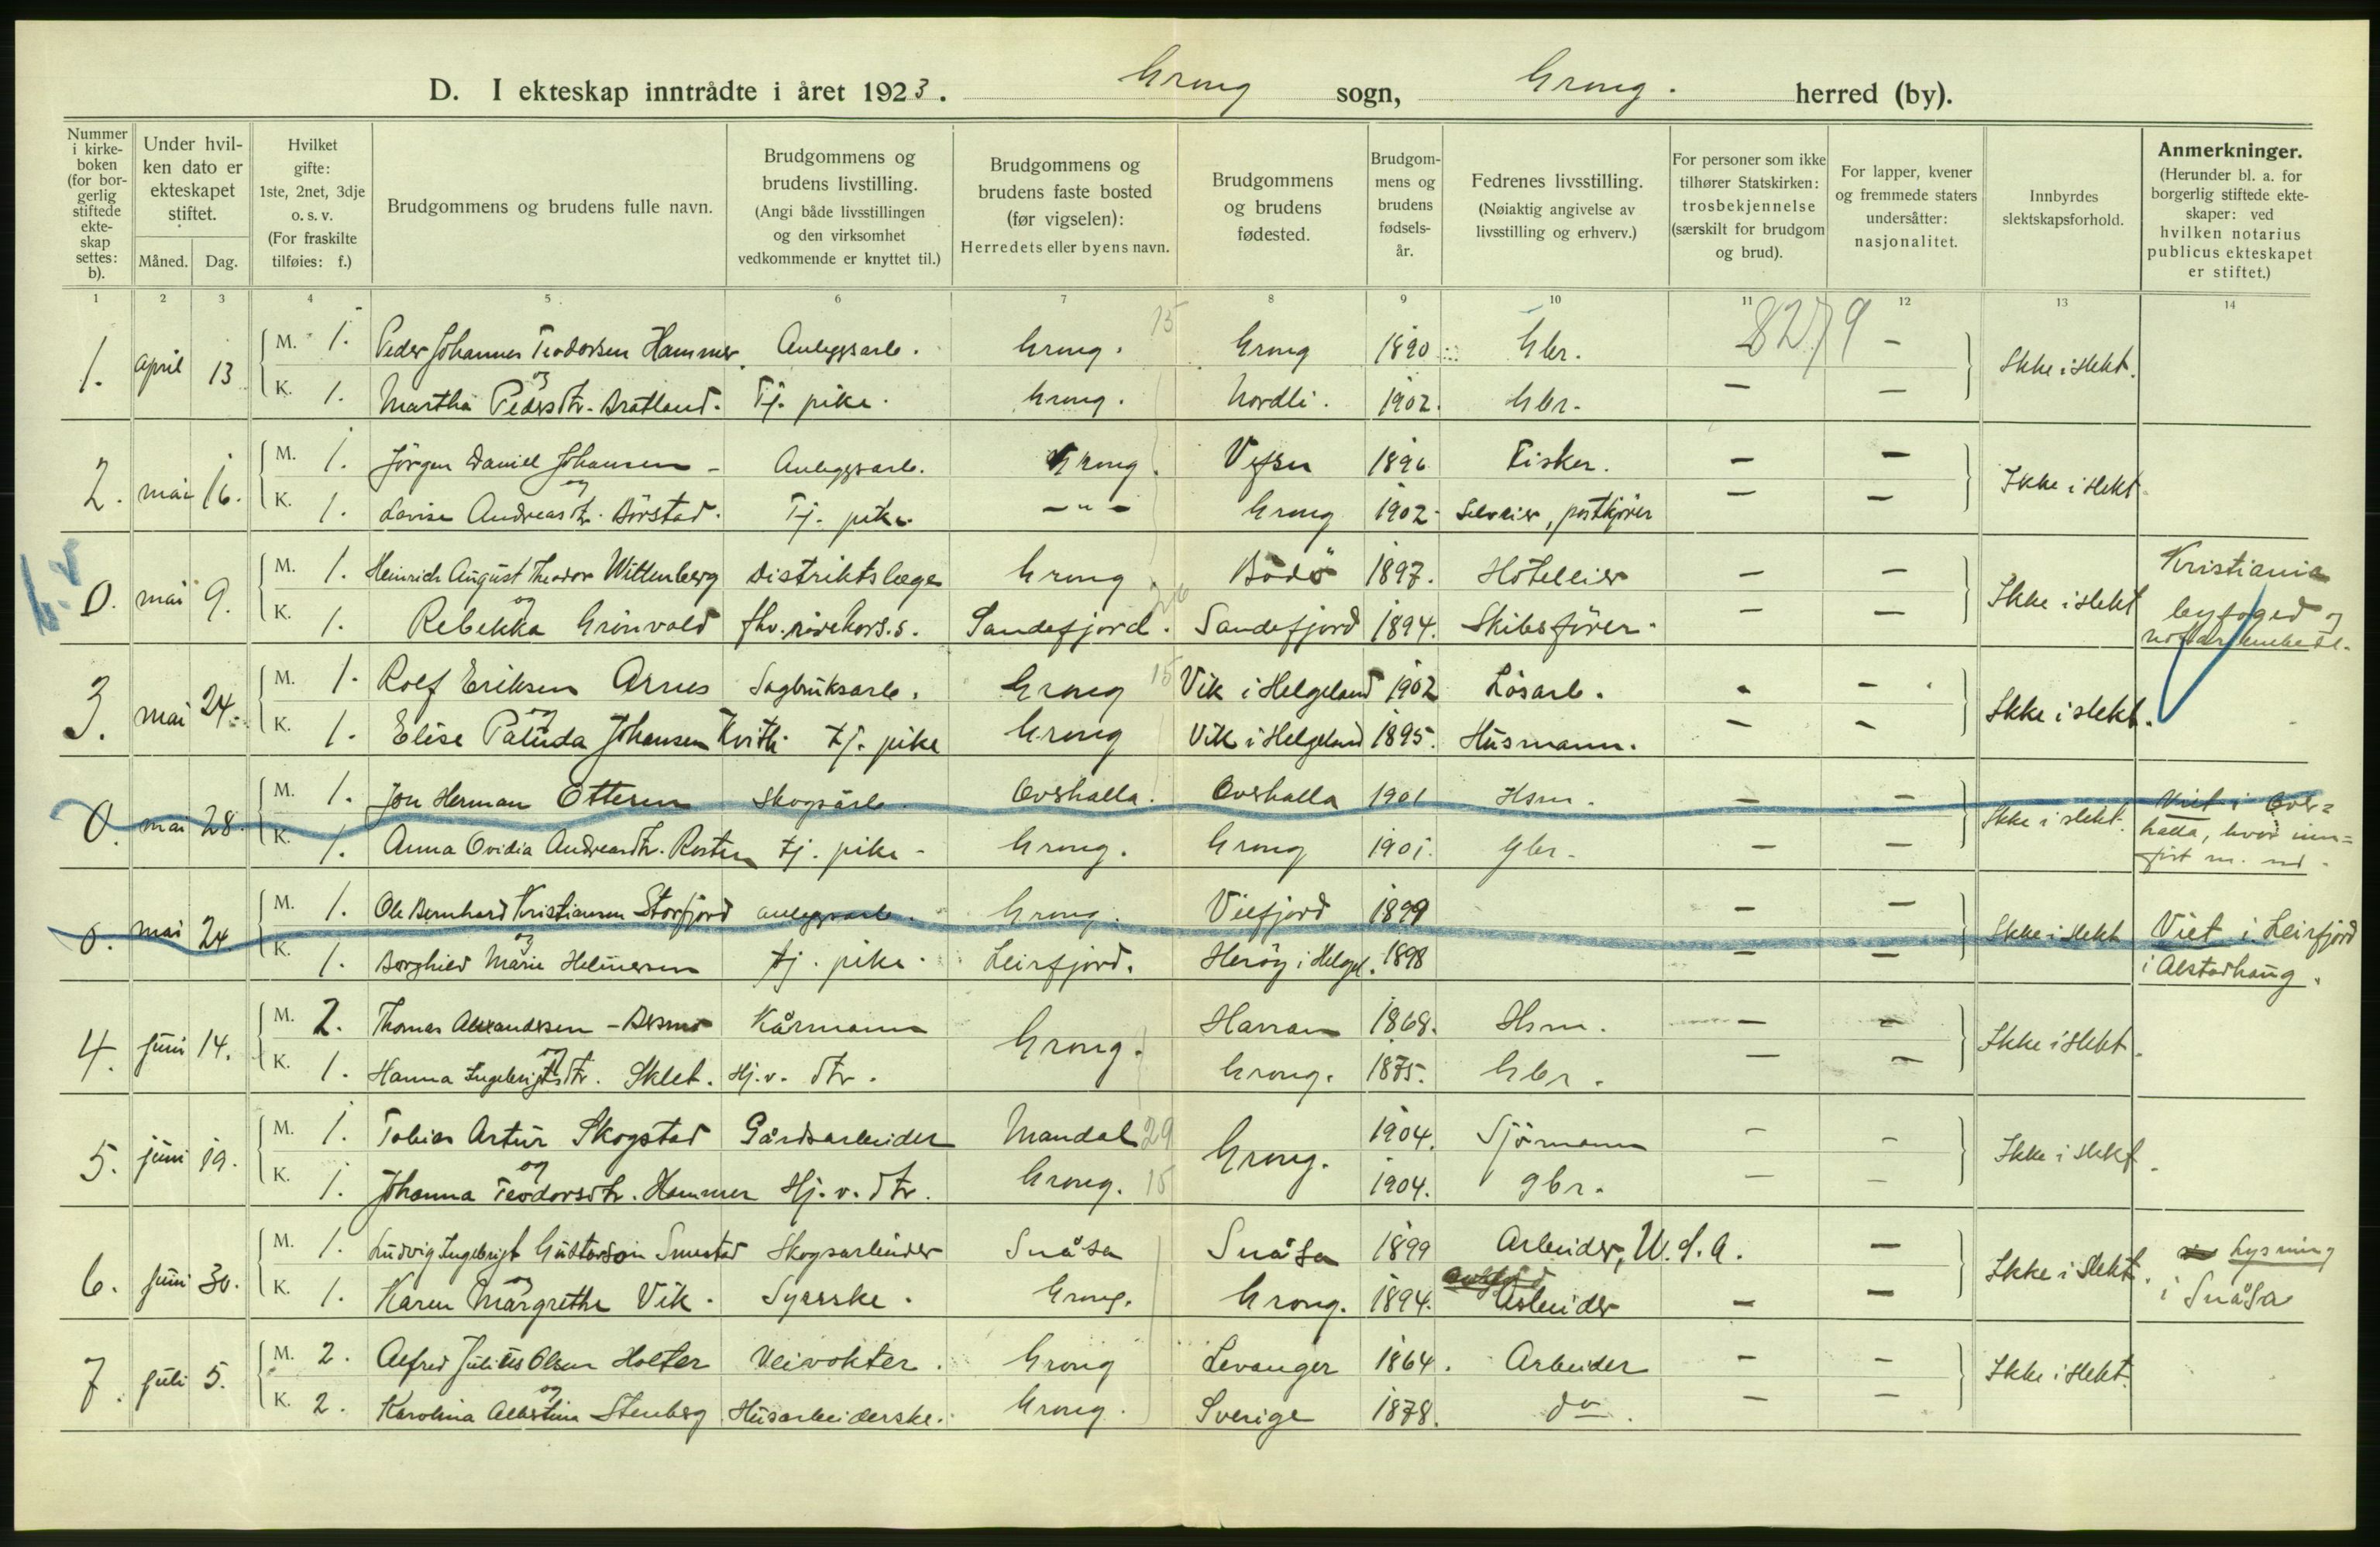 D. I ekteskap inntrådte i året 1923. Grong sogn, Grong. herred (by).
Nummer i kirkeboken (for borgerlig stiftede ekteskap settes: b).
Under hvilken dato er ekteskapet stiftet.
Måned. Dag.
Hvilket gifte: 1ste, 2net, 3dje o. s. v. (For fraskilte tilføies: f.)
Brudgommens og brudens fulle navn.
Brudgommens og brudens livstilling. (Angi både livsstillingen og den virksomhet vedkommende er knyttet til.)
Brudgommens og brudens faste bosted (før vigselen): Herredets eller byens navn.
Brudgommens og brudens fødested.
Brudgommens og brudens fødselsår.
Fedrenes livsstilling. (Nøiaktig angivelse av livsstilling og erhverv.)
For personer som ikke tilhører Statskirken: trosbekjennelse (særskilt for brudgom og brud).
For lapper, kvener og fremmede staters undersåtter: nasjonalitet.
Innbyrdes slektskapsforhold.
Anmerkninger. (Herunder bl. a. for borgerlig stiftede ekteskaper: ved hvilken notarius publicus ekteskapet er stiftet.)
1 2 3 4 5 6 7 8 9 10 11 12 13 14
8279
1. april 13 M. 1. Peder Johannes Teodorsen Hammer Anleggsarb. Grong. 15 Grong 1890 Gbr. - Ikke i slekt.
og
K. 1. Martha Pedersdtr. Bratland. Tj. pike. Grong. Nordli. 1902. Gbr. - -
2. mai 16. M. 1. Jörgen Daniel Johansen - Anleggsarb. Grong. Vefsn 1896 Fisker. - - Ikke i slekt.
og
K. 1. Lovise Andreasdtr. Börstad. Tj. pike. -"- Grong 1902. Selveier, postkjörer - -
0. mai 9. M. 1. Heinrich August Theodor Wittenberg Distriktslæge Grong Bodö 1897. Hotelleier - - Ikke i slekt Kristiania
og
K. 1. Rebekka Grönvold fhv. röde kors. s. Sandefjord. Sandefjord 1894. Skibsförer. - - byfoged og
3. mai 24. M. 1. Rolf Eriksen Arnes Sagbruksarb. Grong 15 Vik i Helgeland 1902 Lösarb. - - Ikke i slekt.
og
K. 1. Elise Paluda Johansen Kvith. tj. pike Grong Vik i Helgeland 1895. Husmann. - -
0. mai 28. M. 1. Jon Herman Ottersen skogsarb. Overhalla. Overhalla 1901 Hsm. - - Ikke i slekt. Viet i Over=
K. 1. Anna Ovidia Andreasdtr. Rosten tj. pike - Grong. Grong 1901. gbr. - - halla, hvor inn=
0. mai 24. M. 1. Ole Bernhard Kristiansen Storfjord anleggsarb. Grong. Velfjord 1899 - - Ikke i slekt Viet i Leirfjord
og
K. 1. Borghild Marie Helmersen tj. pike. Leirfjord. Heröy i Helgel. 1898 - - i Alstadhaug.
4. juni 14. M. 2. Thomas Alexandersen - Bermo Kårmann Grong. Harran 1868. Hsm. - - Ikke i slekt.
og
K. 1. Hanna Ingebrigtsdtr. Sklet. Hj. v. dtr. Grong. 1875. Gbr. - -
5. juni 19. M. 1. Tobias Artur Skogstad Gårdsarbeider Mandal 29 Grong. 1904. Sjömann - - Ikke i slekt.
og
K. 1. Johanna Teodorsdtr. Hammer Hj. v. dtr. Grong. 15 1904. gbr. - -
6. juni 30. M. 1. Ludvig Ingebrigt Gustavson Smestad Skogsarbeider Snåsa Snåsa 1899 Arbeider, U. S. A. - Ikke i slekt. Lysning
og
K. 1. Karen Margrethe Vik. Syerske. Grong. Grong. 1894. Arbeider - - i Snåsa
7. juli 5. M. 2. Alfred Julius Olsen Holter Veivokter. Grong Levanger 1864. Arbeider - - Ikke i slekt.
og
K. 2. Karolina Albertina Stenberg Husarbeiderske. Grong. Sverige 1878. do. - -